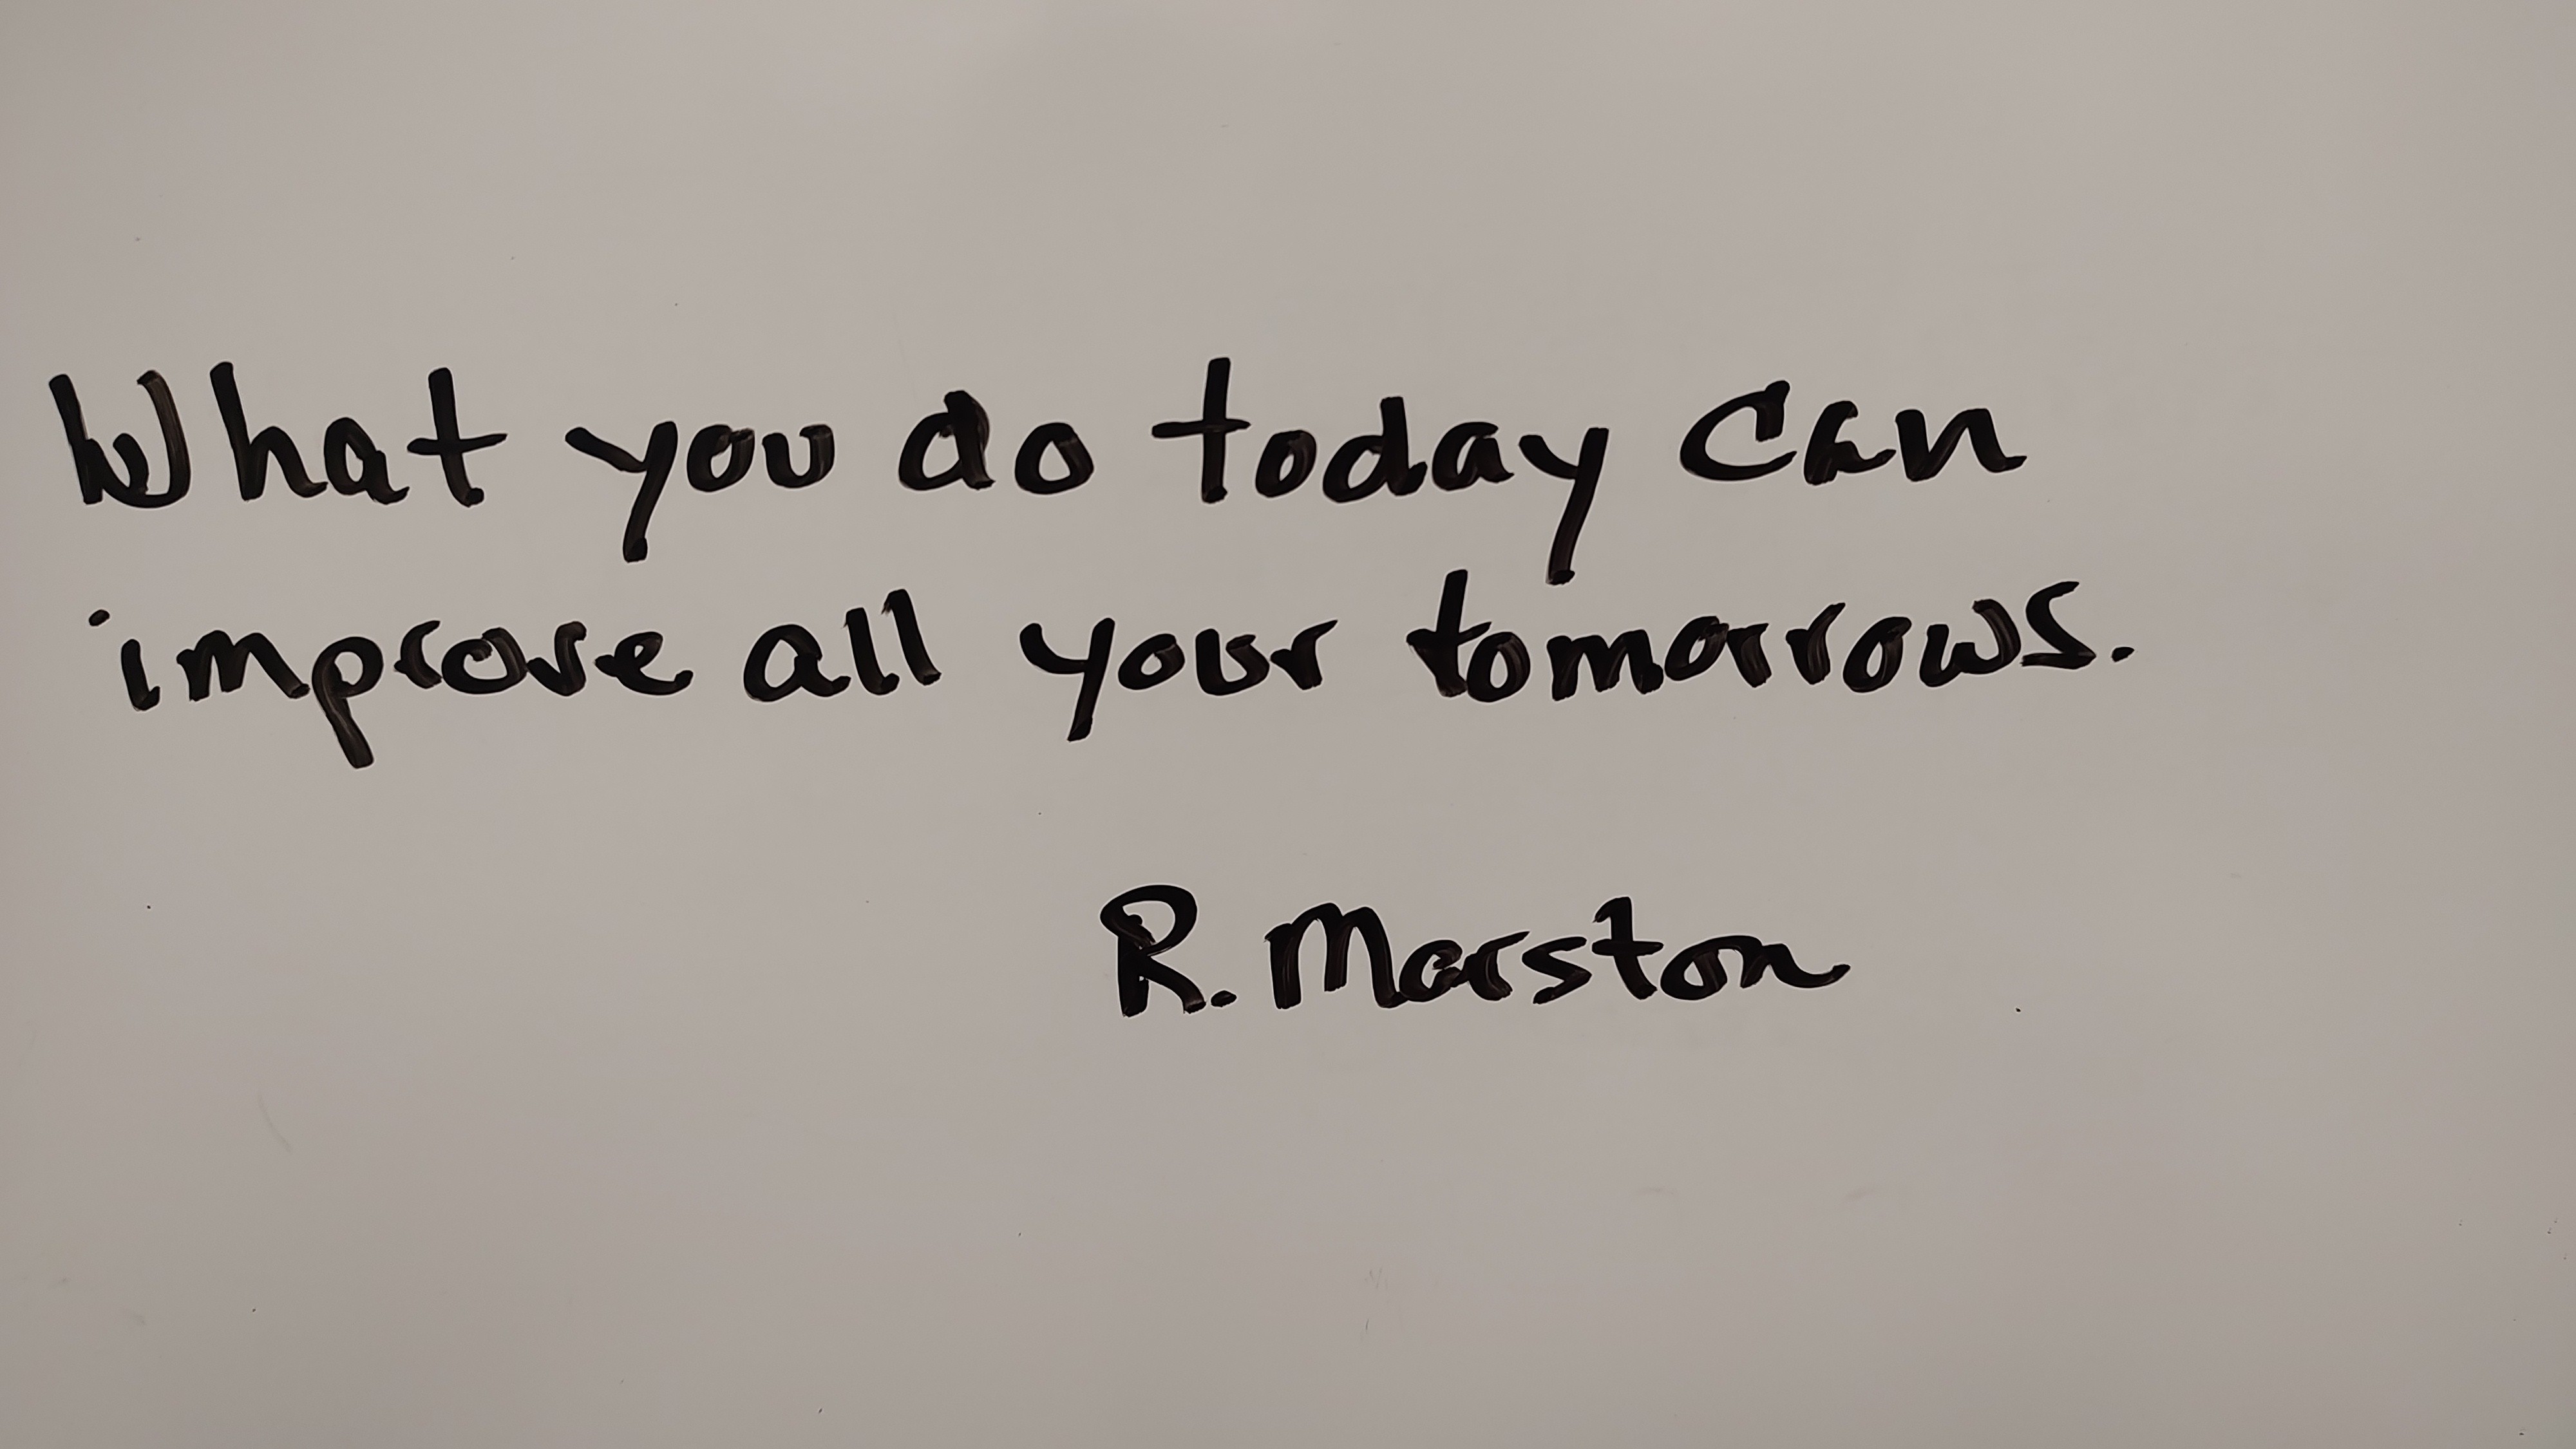 What you do today can
improve all your tomorrows.
R. Marston